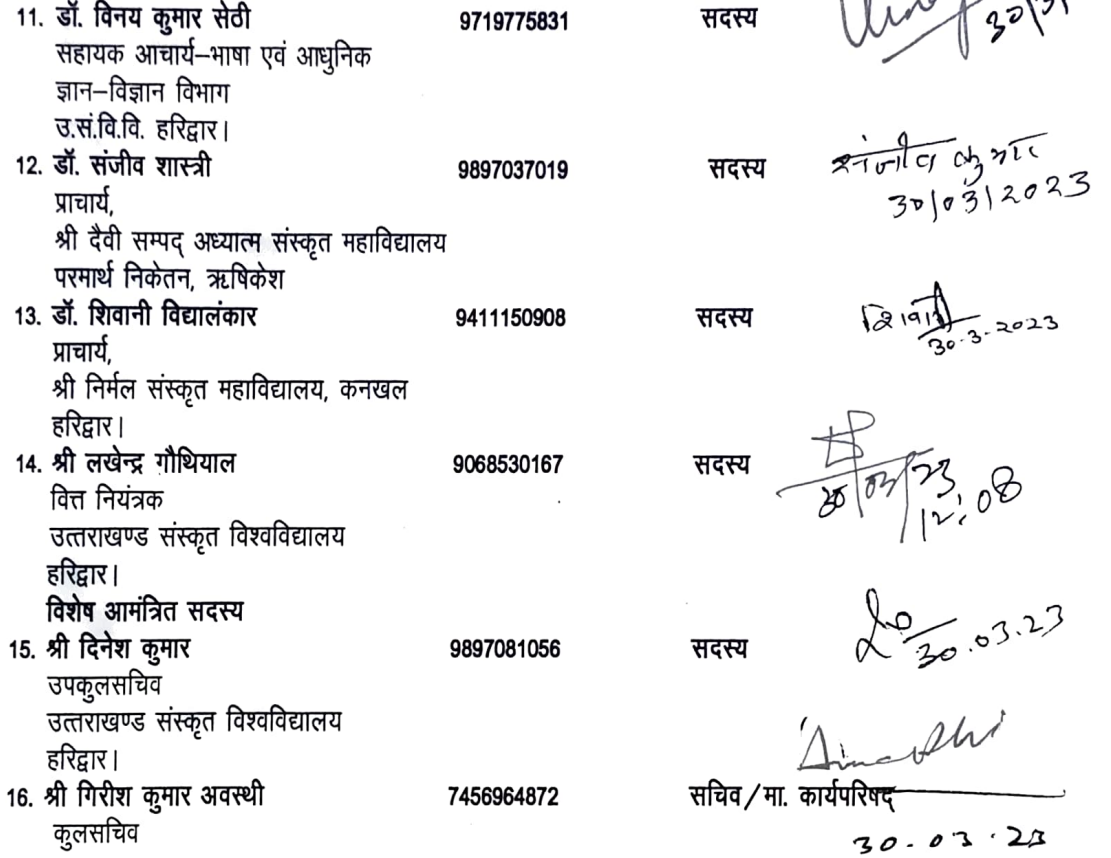 11. डॉ. विनय कुमार सेठी 9719775831 सदस्य 30/3/
सहायक आचार्य–भाषा एवं आधुनिक
ज्ञान–विज्ञान विभाग
उ.सं.वि.वि. हरिद्वार।
12. डॉ. संजीव शास्त्री 9897037019 सदस्य संजीव कुमार
प्राचार्य, 30/03/2023
श्री दैवी सम्पद् अध्यात्म संस्कृत महाविद्यालय
परमार्थ निकेतन, ऋषिकेश
13. डॉ. शिवानी विद्यालंकार 9411150908 सदस्य शिवानी
प्राचार्य, 30-3-2023
श्री निर्मल संस्कृत महाविद्यालय, कनखल
हरिद्वार।
14. श्री लखेन्द्र गौथियाल 9068530167 सदस्य 30/03/23
वित्त नियंत्रक 12:08
उत्तराखण्ड संस्कृत विश्वविद्यालय
हरिद्वार।
विशेष आमंत्रित सदस्य
15. श्री दिनेश कुमार 9897081056 सदस्य 30.03.23
उपकुलसचिव
उत्तराखण्ड संस्कृत विश्वविद्यालय
हरिद्वार।
16. श्री गिरीश कुमार अवस्थी 7456964872 सचिव/मा. कार्यपरिषद्
कुलसचिव 30.03.23